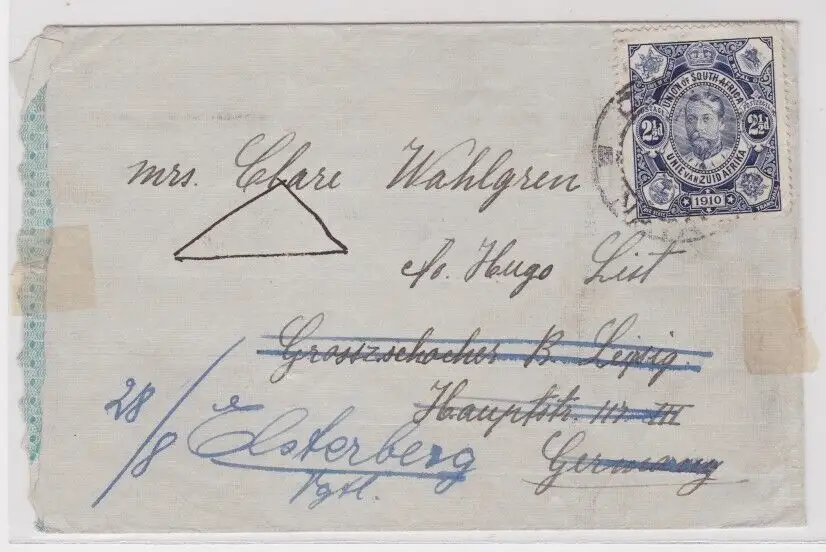 UNION OF SOUTH AFRICA
2½d 2½d
UNIE VAN ZUID AFRIKA
1910
mrs. Clare Wahlgren
c/o. Hugo List
Grosszschocher B. Leipig.
Hauptstr. III
Germany
28/8 Elsterberg
Vgtl.